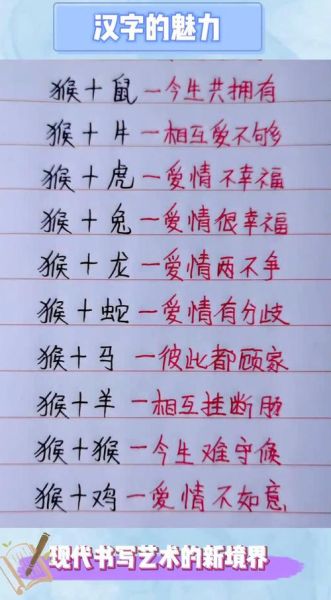 汉字的魅力
猴+鼠一今生共拥有
猴+牛一相互爱不够
猴+虎一爱情不幸福
猴+兔一爱情很幸福
猴+龙一爱情两不争
猴+蛇一爱情有分歧
猴+马一彼此都顾家
猴+羊一相互挂断肠
猴+猴一今生难守候
猴+鸡一爱情不如意
现代书写艺术的新境界